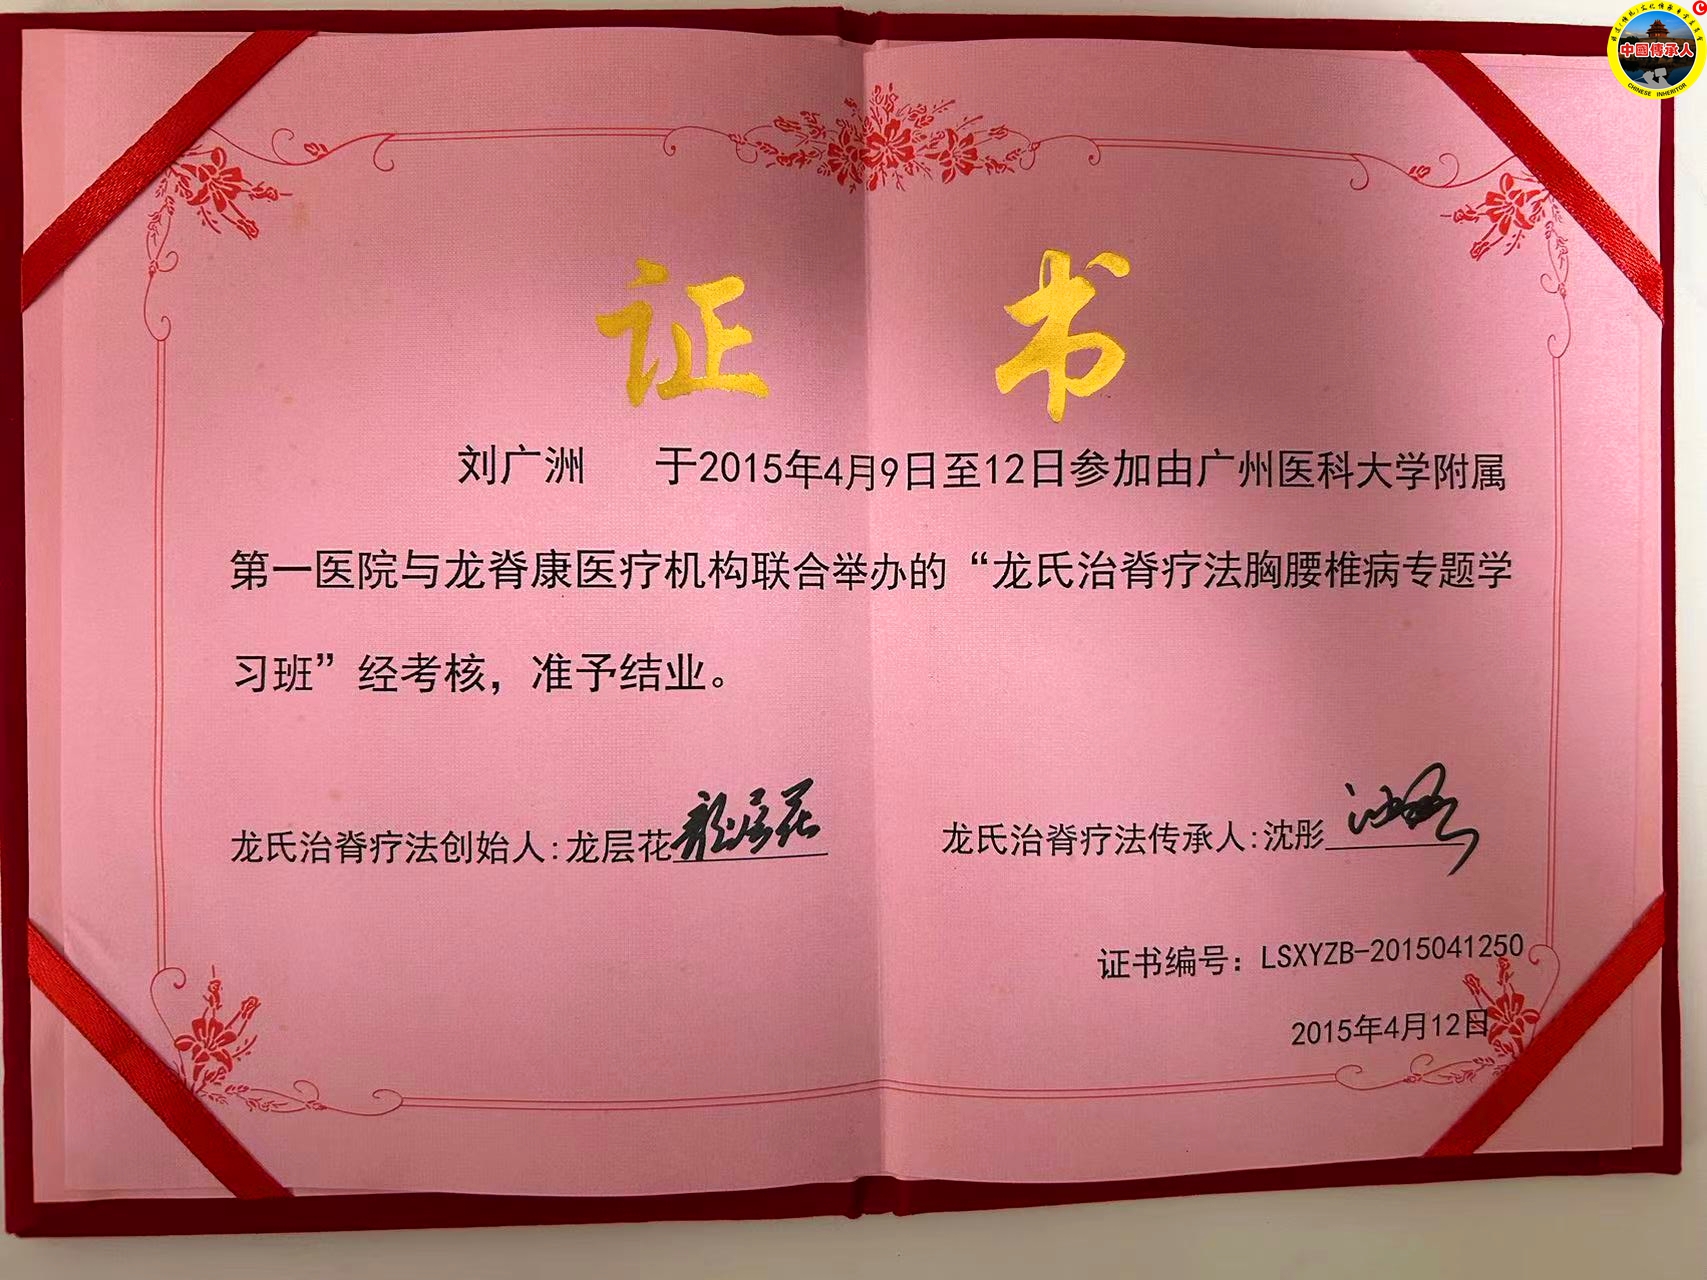 中國傳承人
CHINESE INHERITOR
证 书
刘广洲 于2015年4月9日至12日参加由广州医科大学附属
第一医院与龙脊康医疗机构联合举办的“龙氏治脊疗法胸腰椎病专题学
习班”经考核，准予结业。
龙氏治脊疗法创始人:龙层花 龙层花
龙氏治脊疗法传承人:沈彤
证书编号：LSXYZB-2015041250
2015年4月12日